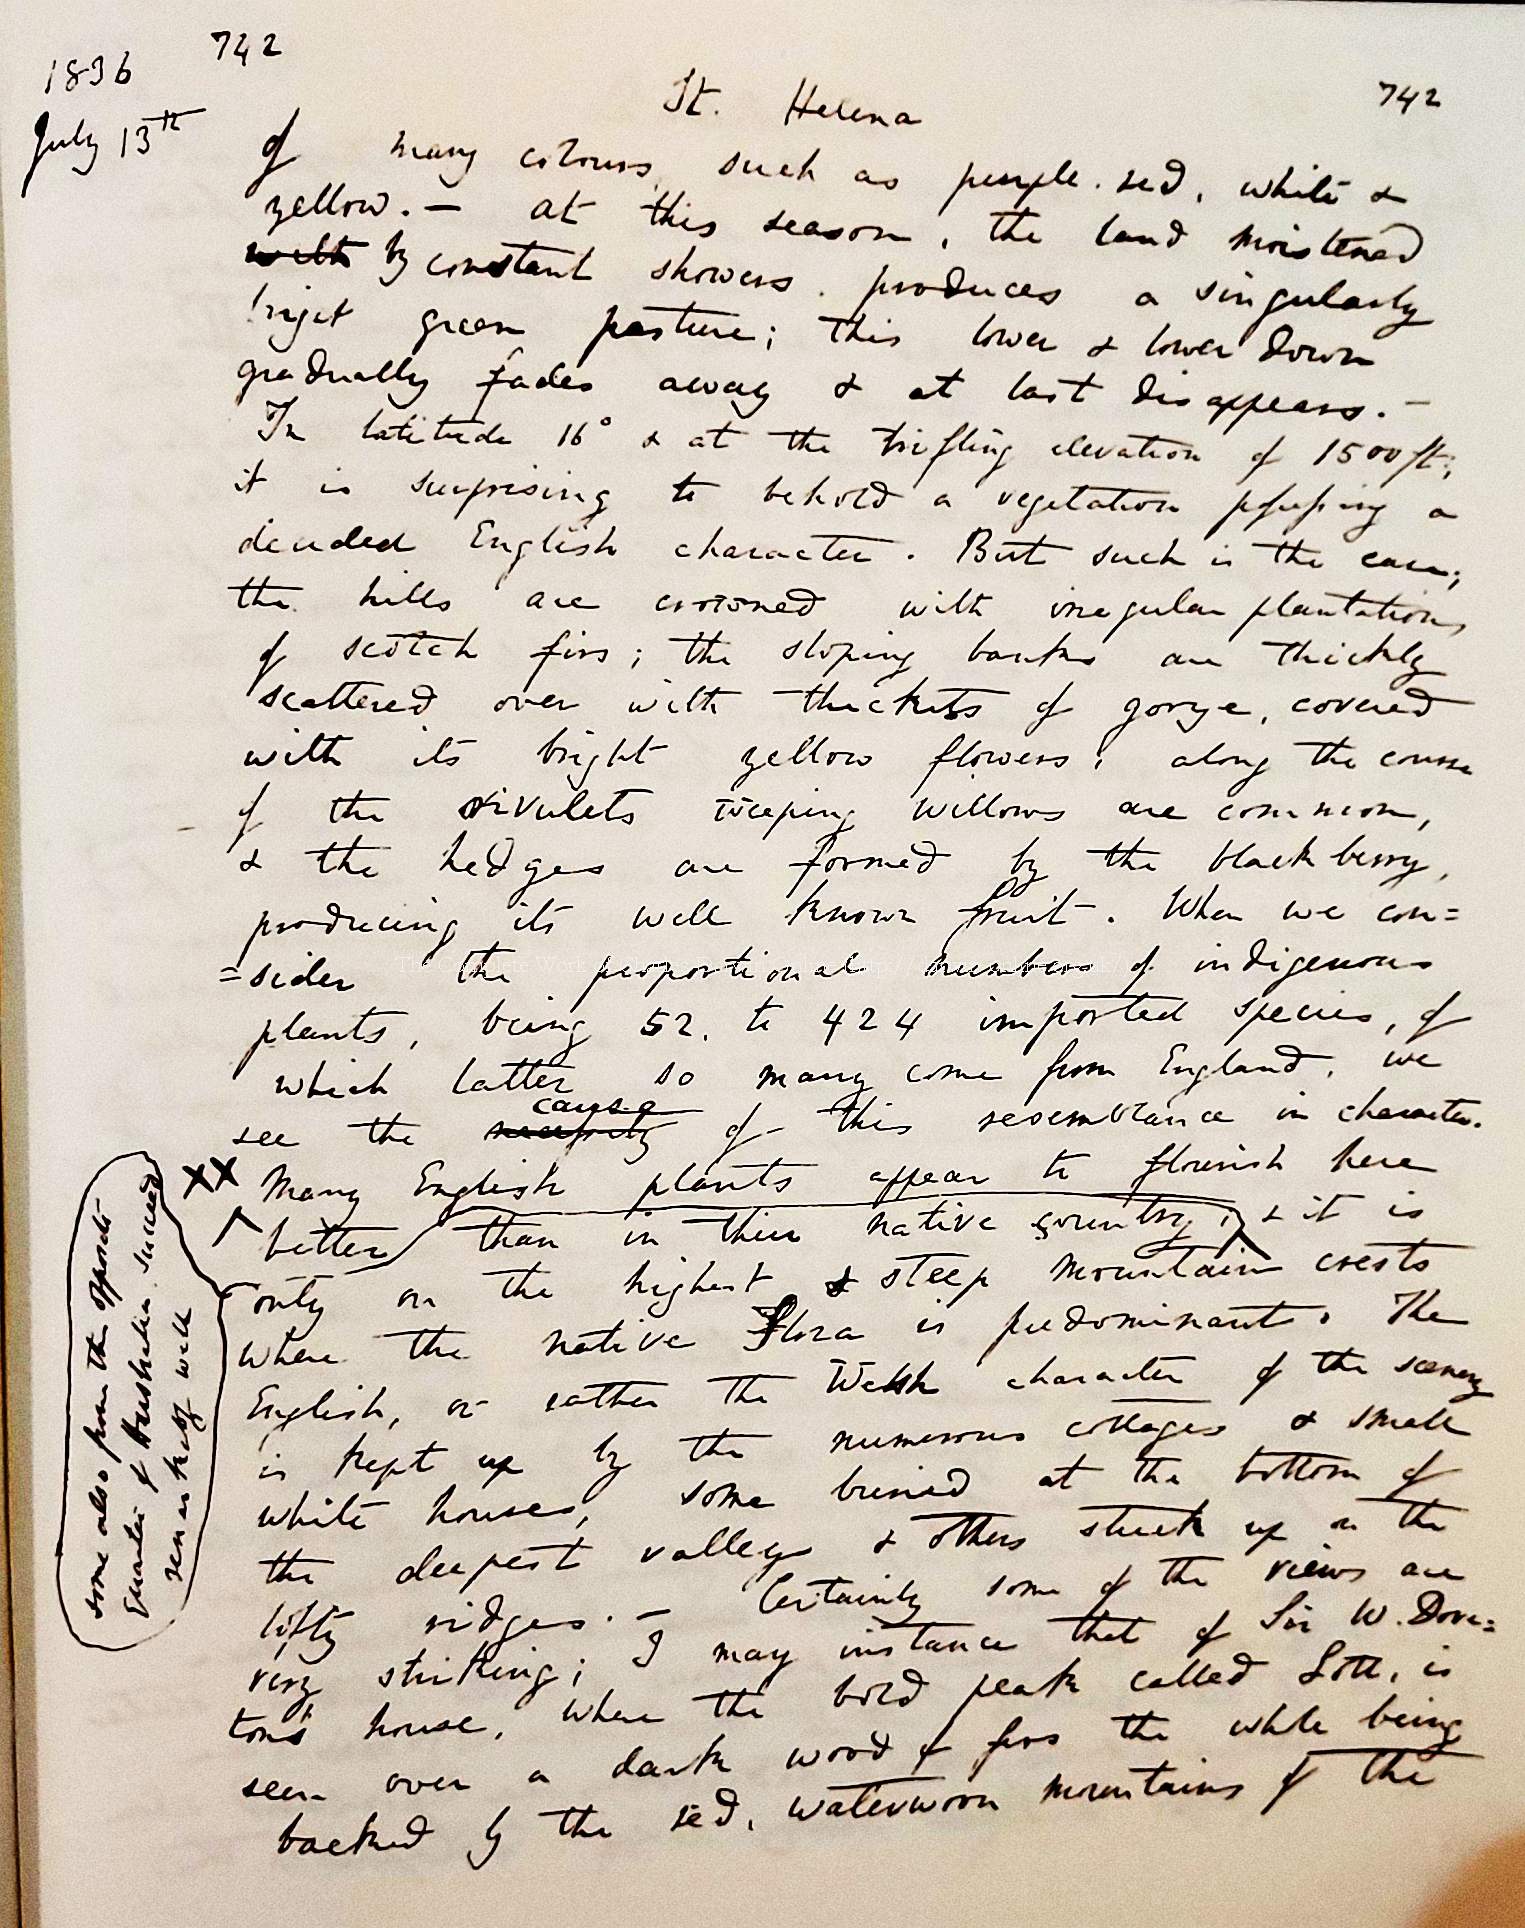 742
1836
St. Helena
742
July 13th
of many colours, such as purple. red, white &
yellow. — at this season, the land moistened
with by constant showers. produces a singularly
bright green pasture; this lower & lower down
gradually fades away & at last disappears. —
In latitude 16° & at the trifling elevation of 1500 ft;
it is surprising to behold a vegetation possessing a
decided English character. But such is the case;
the hills are crowned with irregular plantations
of scotch firs; the sloping banks are thickly
scattered over with thickets of gorze, covered
with its bright yellow flowers; along the course
of the rivulets weeping willows are common,
& the hedges are formed by the blackberry,
producing its well known fruit. When we con=
=sider the proportional numbers of indigenous
plants, being 52. to 424 imported species, of
which latter so many come from England, we
see the necessity cause of this resemblance in character.
XX Many English plants appear to flourish here
better than in their native country; & it is
only on the highest & steep mountain crests
where the native Flora is predominant. The
English, or rather the Welsh character of the scenery
is kept up by the numerous cottages & small
white houses, some buried at the bottom of
the deepest valleys & others stuck up on the
lofty ridges. — Certainly some of the views are
very striking; I may instance that of Sir W. Dove=
tons house, where the bold peak called Lott, is
seen over a dark wood of firs the while being
backed by the red, waterworn mountains of the
some also from the opposite
Quarter of Australia succeed
remarkably well